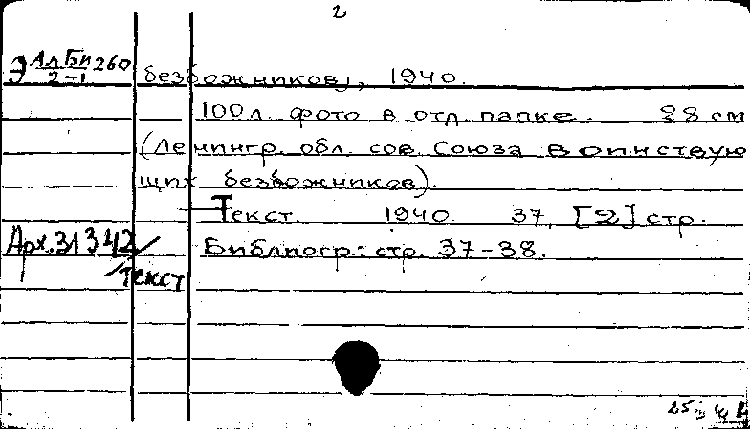 2
Э АлБи 260 безбожников), 1940.
2-1
100 л. фото в отд. папке. 38 см
(Ленингр. обл. сов. Союза воинствую
щих безбожников).
Текст. 1940. 37, [2] стр.
Арх. 31342/ Библиогр.: стр. 37-38.
/текст